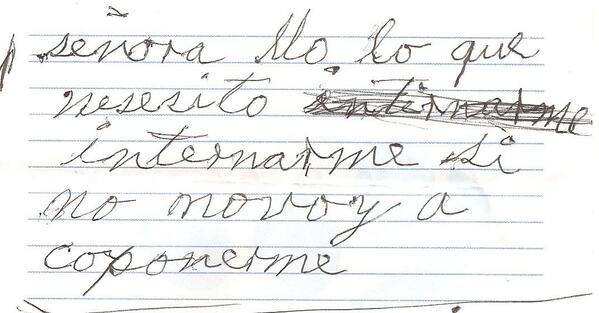 señora Yo lo que
nesesito internarme
internarme si
no movoy a
coponerme